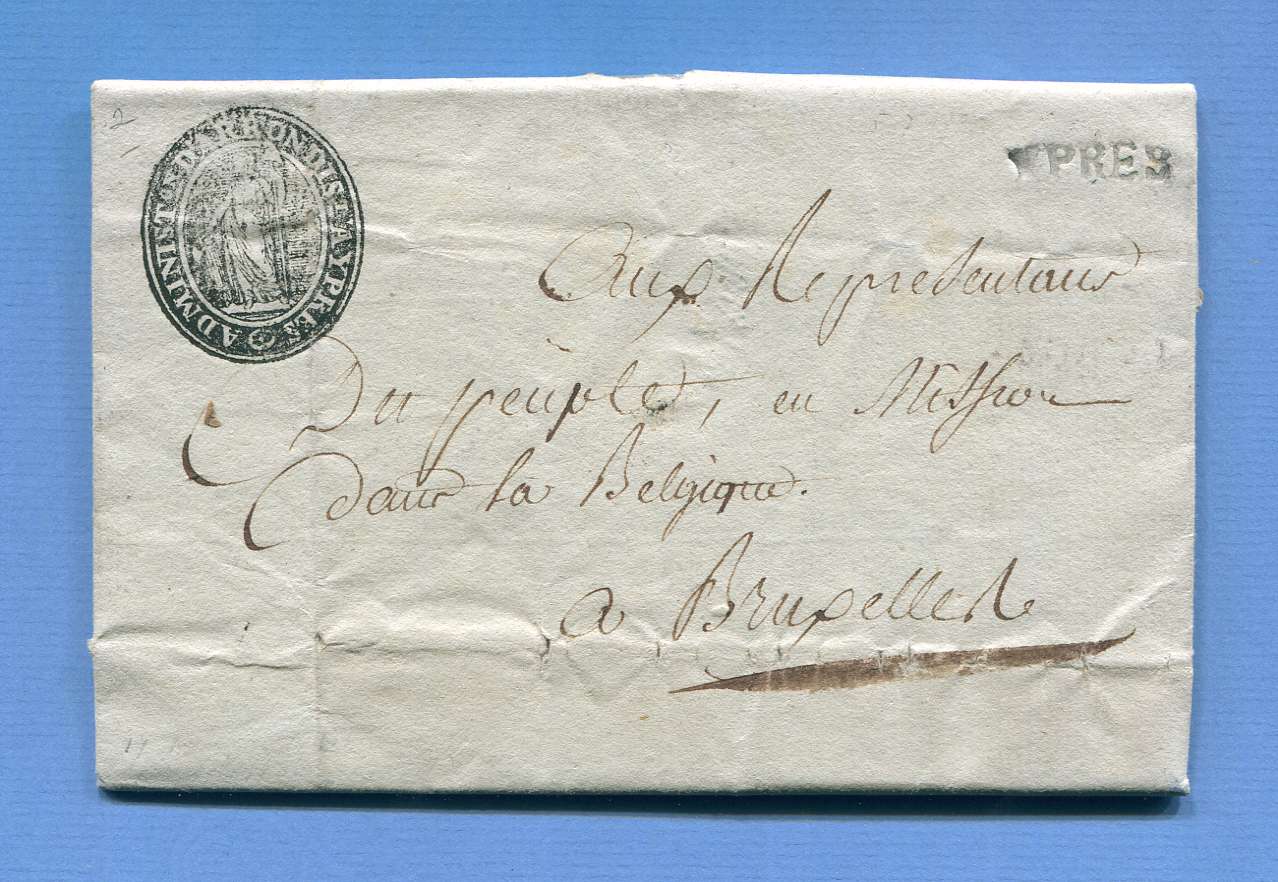 2
ADMINIST^ON D'ARRONDIS^T A YPRES
YPRES
Aux Representans
Du peuple, en Mission
dans la Belgique.
a Bruxelles